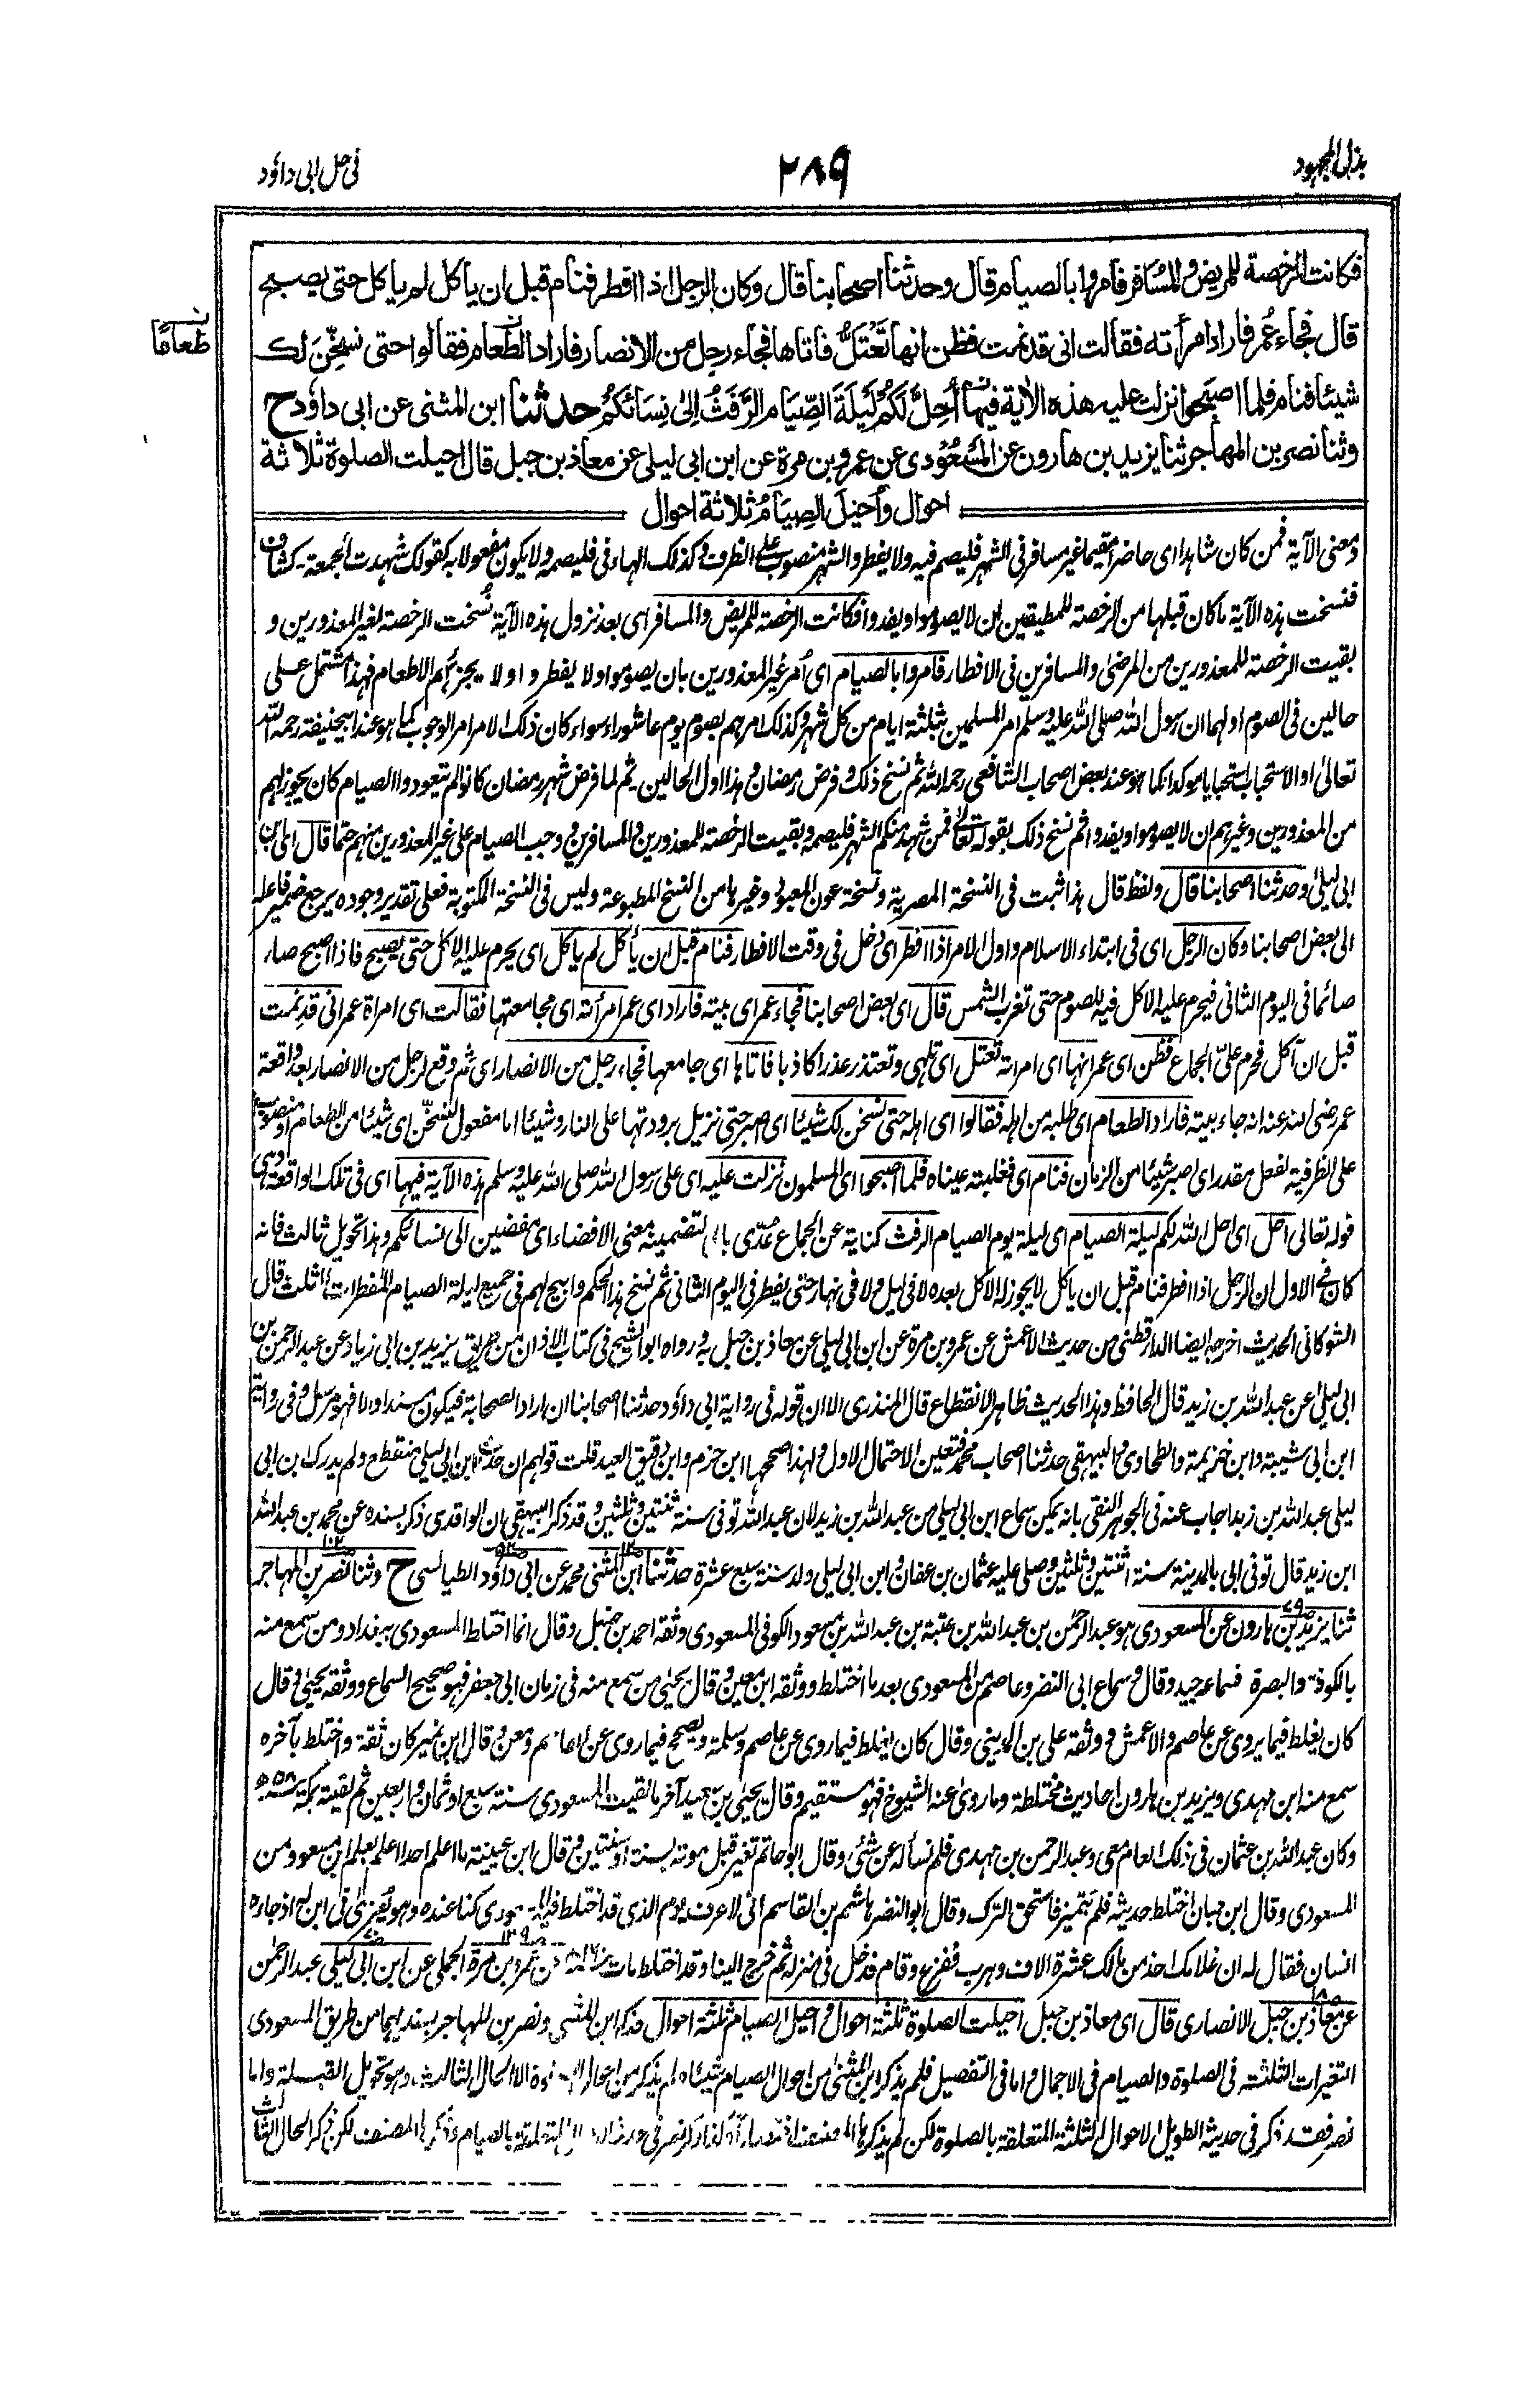 بذل المجهود
٢٨٩
فی حل ابی داؤد
فكانت الرخصة للمريض والمسافر فامروا بالصيام قال وحدثنا اصحابنا قال وكان الرجل اذا افطر فنام قبل ان ياكل لم ياكل حتى يصبح
قال فجاء عُمر فاراد امرأته فقالت انى قد نمت فظن انها تَعْتَلُّ فاتاها فجاء رجل من الانصار فاراد الطعام فقالوا حتى نسخّن لك
ن طعامًا
شيئا فنام فلما اصبحوا نزلت عليه هذه الاٰية فيها أُحِلَّ لَكُمْ لَيْلَةَ الصِّيَامِ الرَّفَثُ اِلىٰ نِسَائِكُمْ حدثنا ابن المثنى عن ابى داؤد ح
وثنا نصر بن المهاجر ثنا يزيد بن هارون عن المَسْعُوْدى عن عمرو بن مرة عن ابن ابى ليلى عن معاذ بن جبل قال احيلت الصلوة ثلاثة
احوال وأُحيلَ الصِيَامُ ثلاثة احوال
ومعنى الآية فمن كان شاهدا اى حاضرا مقيما غير مسافر فى الشهر فليصم فيه ولا يفطر والشهر منصوب على الظرف وكذلك الهاء فى فليصمه ولا يكون مفعولا به كقولك شهدت الجمعة - كشاف
فنسخت هذه الآية ما كان قبلها من الرخصة للمطيقين ان لا يصوموا ويفدوا فكانت الرخصة للمريض والمسافر اى بعد نزول هذه الآية نُسخت الرخصة لغير المعذورين و
بقيت الرخصة للمعذورين من المرضىٰ والمسافرين فى الافطار فامروا بالصيام اى اُمر غير المعذورين بان يصوموا ولا يفطروا ولا يجزئهم الاطعام فهذا مشتمل على
حالين فى الصوم اولهما ان رسول الله صلى الله عليه وسلم امر المسلمين بثلثة ايام من كل شهر وكذلك امرهم بصوم يوم عاشوراء سواء كان ذلك الامر امر الوجوب كما هو عند ابيحنيفة رحمه الله
تعالىٰ او الاستحباب استحبابا موكدا كما هو عند بعض اصحاب الشافعى رحمه الله ثم نسخ ذلك وفرض رمضان وهذا اول الحالين - ثم لما فرض شهر رمضان كانوا لم يتعودوا الصيام كان يجوز لهم
من المعذورين وغيرهم ان لا يصوموا ويفدوا ثم نسخ ذلك بقوله تعالىٰ فمن شهد منكم الشهر فليصمه وبقيت الرخصة للمعذورين والمسافرين ووجب الصيام على غير المعذورين منهم حتما قال اى ابن
ابى ليلىٰ وحدثنا اصحابنا قال ولفظ قال هذا ثبت فى النسخة المصرية ونسخة عون المعبود وغيرها من النسخ المطبوعة وليس فى النسخة المكتوبة فعلى تقدير وجوده يرجع ضمير فاعله
الى بعض اصحابنا وكان الرجل اى فى ابتداء الاسلام واول الامر اذا افطر اى دخل فى وقت الافطار فنام قبل ان يأكل لم ياكل اى يحرم عليه الاكل حتى يصبح فاذا اصبح صار
صائما فى اليوم الثانى فيحرم عليه الاكل فيه للصوم حتى تغرب الشمس قال اى بعض اصحابنا فجاء عمر اى بيته فاراد اى عمر امرأته اى مجامعتها فقالت اى امراة عمر انى قد نمت
قبل ان آكل فحرم علىّ الجماع فظن اى عمر انها اى امراته تعتل اى تلهى وتعتذر عذرا كاذبا فاتاها اى جامعها فجاء رجل من الانصار اى ثم وقع لرجل من الانصار بعد واقعة
عمر رضى الله عنه انه جاء بيته فاراد الطعام اى طلبه من اهله فقالوا اى اهله حتى نسخن لك شيئا اى اصبر حتى نزيل برودتها على النار وشيئا اما مفعول لنسخّن اى شيئا من الطعام او منصوب
على الظرفية لفعل مقدر اى اصبر شيئا من الزمان فنام اى فغلبته عيناه فلما اصبحوا اى المسلمون نزلت عليه اى على رسول الله صلى الله عليه وسلم هذه الآية فيها اى فى تلك الواقعة وهى
قوله تعالى احل اى احل الله لكم ليلة الصيام اى ليلة يوم الصيام الرفث كناية عن الجماع عُدّى بالى لتضمينه معنى الافضاء اى مفضين الى نسائكم وهذا تحويل ثالث فانه
كان فى الاول ان الرجل اذا افطر فنام قبل ان ياكل لا يجوز له الاكل بعده لا فى ليل ولا فى نهار حتى يفطر فى اليوم الثانى ثم نسخ هذا الحكم وابيح لهم فى جميع ليلة الصيام المفطرات الثلث قال
الشوكانى الحديث اخرجه ايضا الدارقطنى من حديث الاعمش عن عمرو بن مرة عن ابن ابى ليلى عن معاذ بن جبل به ورواه ابو الشيخ فى كتاب الاذان من طريق يزيد بن ابى زياد عن عبد الرحمن بن
ابى ليلىٰ عن عبد الله بن زيد قال الحافظ وهذا الحديث ظاهر الانقطاع قال المنذرى الا ان قوله فى رواية ابى داؤد حدثنا اصحابنا ان اراد الصحابة فيكون مسندا والا فهو مرسل وفى رواية
ابن ابى شيبة وابن خزيمة والطحاوى والبيهقى حدثنا اصحاب محمد فتعين الاحتمال الاول ولهذا صححها ابن حزم وابن دقيق العيد قلت قولهم ان حديث ابن ابى ليلى منقطع ولم يدرك ابن ابى
ليلى عبد الله بن زيد اجاب عنه فى الجوهر النقى بانه يمكن سماع ابن ابى ليلى من عبد الله بن زيد لان عبد الله توفى سنة ثنتين وثلثين وقد ذكر البيهقى ان الواقدى ذكر بسنده عن محمد بن عبد الله
ابن زيد قال توفى ابى بالمدينة سنة اثنتين وثلثين وصلى عليه عثمان بن عفان وابن ابى ليلى ولد سنة سبع عشرة حدثنا ابن المثنى محمد عن ابى داؤد الطيالسى ح وثنا نصر بن المهاجر
ثنا يزيد بن هارون عن المسعودى هو عبد الرحمٰن بن عبد الله بن عتبة بن عبد الله بن مسعود الكوفى المسعودى وثقه احمد بن حنبل وقال انما اختلط المسعودى ببغداد ومن سمع منه
بالكوفة والبصرة فسماعه جيد وقال وسماع ابى النضر وعاصم من المسعودى بعد ما اختلط ووثقه ابن معين وقال يحيٰى من سمع منه فى زمان ابى جعفر فهو صحيح السماع ووثقه يحيىٰ وقال
كان يغلط فيما يروى عن عاصم والاعمش ووثقه على بن المدينى وقال كان يغلط فيما روى عن عاصم وسلمة ويصحح فيما روى عن القاسم ومعن وقال ابن نمير كان ثقة واختلط بآخره
سمع منه ابن مهدى ويزيد بن هارون احاديث مختلطة وما روىٰ عنه الشيوخ فهو مستقيم وقال يحيىٰ بن سعيد آخر ما لقيت المسعودى سنة سبع او ثمان واربعين ثم لقيته بمكة سنة ٥٨ه
وكان عبد الله بن عثمان فى ذلك العام معى وعبد الرحمن بن مهدى فلم نسأله عن شئ وقال ابو حاتم تغير قبل موته بسنة او سنتين وقال ابن عيينة ما اعلم احدا اعلم بعلم ابن مسعود من
المسعودى وقال ابن حبان اختلط حديثه فلم يتميز فاستحق الترك وقال ابو النضر هاشم بن القاسم انى لاعرف يوم الذى قد اختلط فيه المسعودى كنا عنده وهو يُعزىٰ فى ابن له اذ جاءه
انسان فقال له ان غلامك اخذ من مالك عشرة الاف وهرب ففزع وقام فدخل فى منزله ثم خرج الينا وقد اختلط مات عن عمرو بن مرة الجملى عن ابن ابى ليلى عبد الرحمٰن
عن معاذ بن جبل الانصارى قال اى معاذ بن جبل احيلت الصلوة ثلثة احوال واحيل الصيام ثلثة احوال فذكر ابن المثنى ونصر بن المهاجر بسنديهما من طريق المسعودى
التغيرات الثلثة فى الصلوة والصيام فى الاجمال واما فى التفصيل فلم يذكر ابن المثنىٰ من احوال الصيام شيئا ولم يذكر من احوال الصلوة الا الحال الثالث وهو تحويل القبلة واما
نصر فقد ذكر فى حديثه الطويل الاحوال الثلثة المتعلقة بالصلوة لكن لم يذكرها المصنف المتعلقة بالصيام المصنف لكن ذكر الحال الثالث